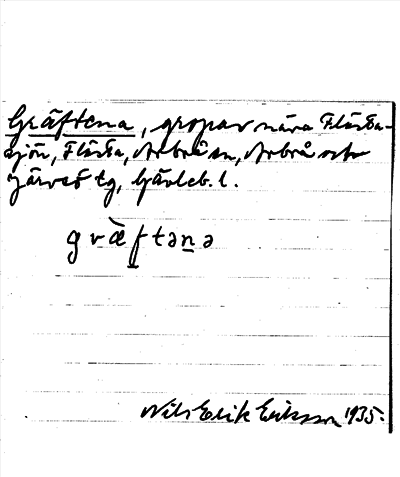 Gräftena, gropar nära Flästa-
sjön, Flästa, Arbrå sn, Arbrå och
Järvsö tg, Gävleb. l.
gräftəna
Nils Erik Eriksson 1935.